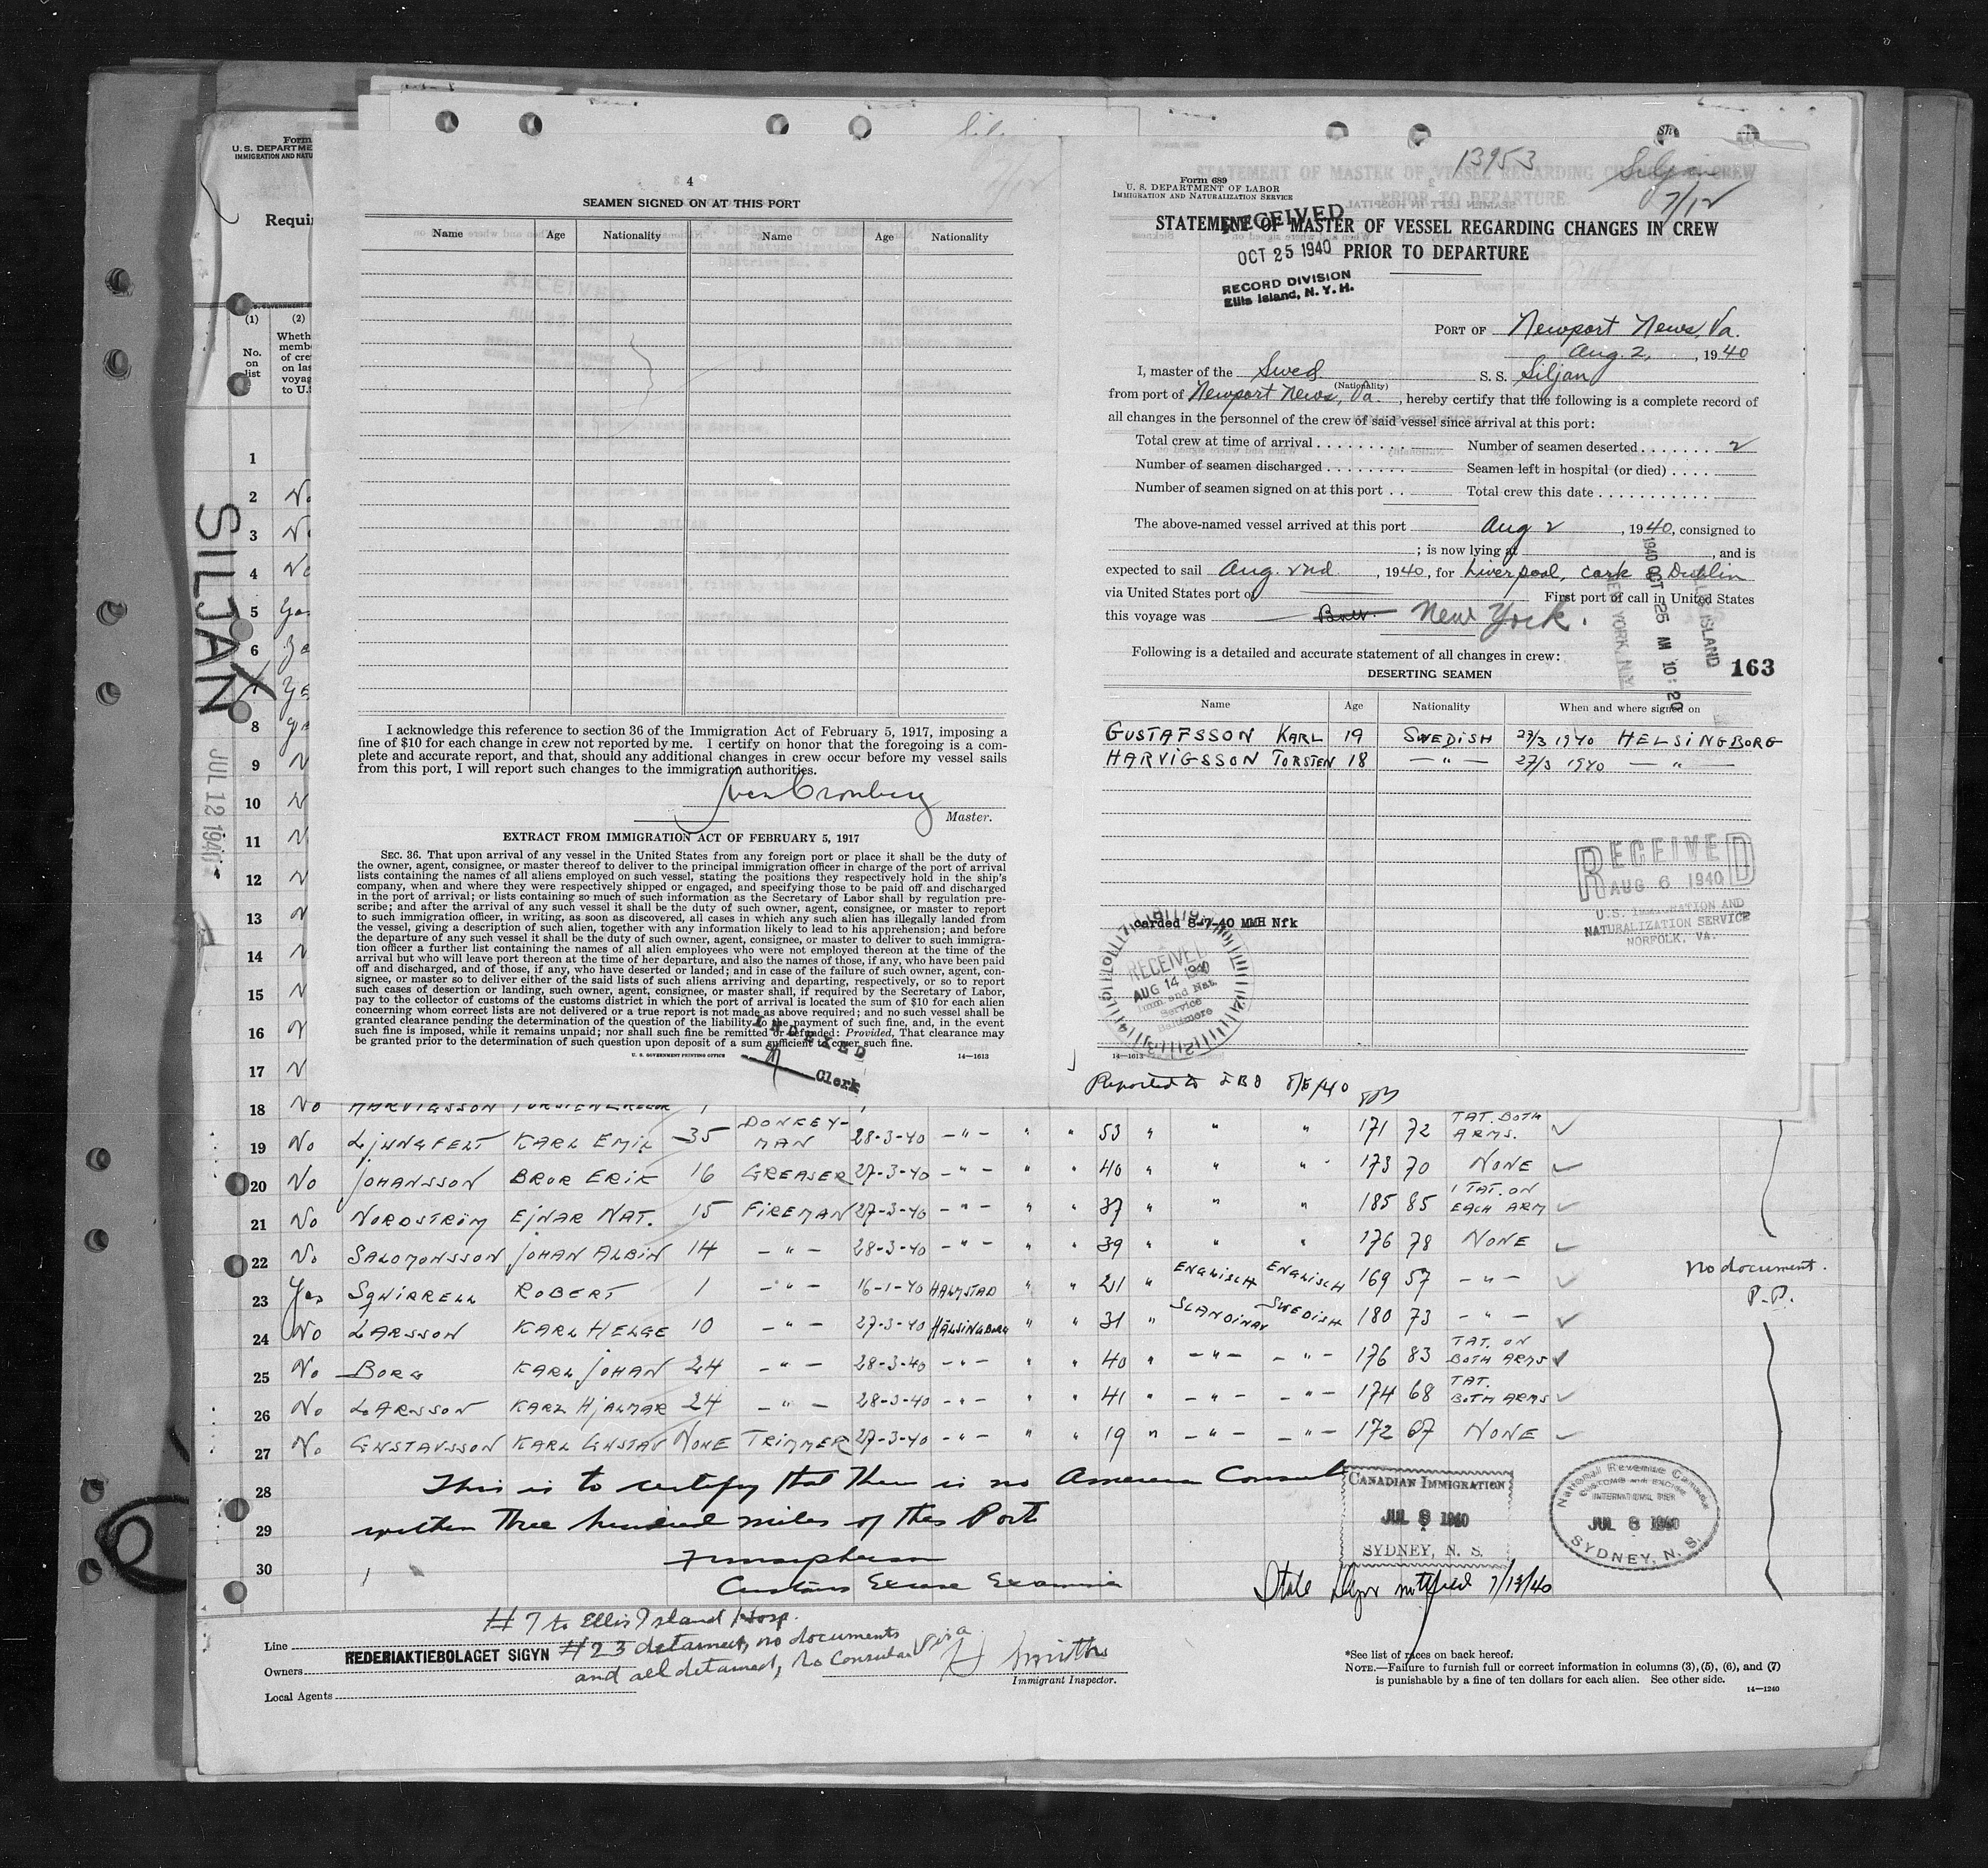 Form
U. S. DEPARTME
IMMIGRATION AND NATU
Requir
(1) (2)
No. on list
Wheth
memb
of cre
on las
voyag
to U.S
SILJAN
JUL 12 1940
4
SEAMEN SIGNED ON AT THIS PORT
Name Age Nationality Name Age Nationality
I acknowledge this reference to section 36 of the Immigration Act of February 5, 1917, imposing a
fine of $10 for each change in crew not reported by me. I certify on honor that the foregoing is a com-
plete and accurate report, and that, should any additional changes in crew occur before my vessel sails
from this port, I will report such changes to the immigration authorities.
Master.
EXTRACT FROM IMMIGRATION ACT OF FEBRUARY 5, 1917
SEC. 36. That upon arrival of any vessel in the United States from any foreign port or place it shall be the duty of
the owner, agent, consignee, or master thereof to deliver to the principal immigration officer in charge of the port of arrival
lists containing the names of all aliens employed on such vessel, stating the positions they respectively hold in the ship's
company, when and where they were respectively shipped or engaged, and specifying those to be paid off and discharged
in the port of arrival; or lists containing so much of such information as the Secretary of Labor shall by regulation pre-
scribe; and after the arrival of any such vessel it shall be the duty of such owner, agent, consignee, or master to report
to such immigration officer, in writing, as soon as discovered, all cases in which any such alien has illegally landed from
the vessel, giving a description of such alien, together with any information likely to lead to his apprehension; and before
the departure of any such vessel it shall be the duty of such owner, agent, consignee, or master to deliver to such immigra-
tion officer a further list containing the names of all alien employees who were not employed thereon at the time of the
arrival but who will leave port thereon at the time of her departure, and also the names of those, if any, who have been paid
off and discharged, and of those, if any, who have deserted or landed; and in case of the failure of such owner, agent, con-
signee, or master so to deliver either of the said lists of such aliens arriving and departing, respectively, or so to report
such cases of desertion or landing, such owner, agent, consignee, or master shall, if required by the Secretary of Labor,
pay to the collector of customs of the customs district in which the port of arrival is located the sum of $10 for each alien
concerning whom correct lists are not delivered or a true report is not made as above required; and no such vessel shall be
granted clearance pending the determination of the question of the liability to the payment of such fine, and, in the event
such fine is imposed, while it remains unpaid; nor shall such fine be remitted or refunded: Provided, That clearance may
be granted prior to the determination of such question upon deposit of a sum sufficient to cover such fine.
U. S. GOVERNMENT PRINTING OFFICE 14—1613
INDEXED
Clerk
13953
Siljan
7/12
Form 689
U. S. DEPARTMENT OF LABOR
IMMIGRATION AND NATURALIZATION SERVICE
STATEMENT OF MASTER OF VESSEL REGARDING CHANGES IN CREW
PRIOR TO DEPARTURE
RECEIVED
OCT 25 1940
RECORD DIVISION
Ellis Island, N. Y. H.
PORT OF Newport News, Va.
Aug. 2, , 1940
I, master of the Swed. S. S. Siljan
(Nationality)
from port of Newport News, Va. , hereby certify that the following is a complete record of
all changes in the personnel of the crew of said vessel since arrival at this port:
Total crew at time of arrival Number of seamen deserted 2
Number of seamen discharged Seamen left in hospital (or died)
Number of seamen signed on at this port Total crew this date
The above-named vessel arrived at this port Aug 2 , 1940, consigned to
; is now lying at , and is
expected to sail Aug. 2nd , 1940, for Liverpool, Cork & Dublin
via United States port of First port of call in United States
this voyage was Balt. New York.
Following is a detailed and accurate statement of all changes in crew:
ELLIS ISLAND
1940 OCT 25 AM 10: 20
NEW YORK, N.Y.
163
DESERTING SEAMEN
Name Age Nationality When and where signed on
GUSTAFSSON KARL 19 SWEDISH 27/3 1940 HELSINGBORG
HARVIGSSON TORSTEN 18 — " — 27/3 1940 — " —
RECEIVED
AUG 6 1940
U.S. IMMIGRATION AND
NATURALIZATION SERVICE
NORFOLK, VA.
carded 8-7-40 MMH Nfk
RECEIVED
AUG 14 1940
Imm. and Nat.
Service
Baltimore
14—1613
Reported to 8/6/40
1
2 No
3 No
4 No
5 Yes
6 Ye
7 Ye
8 Ye
9 N
10 N
11 N
12 N
13 N
14 N
15 N
16 N
17 N
18 No HARVIGSSON
19 No LJUNGFELT KARL EMIL 35 DONKEY-MAN 28-3-40 — " — " " 53 " " " 171 72 TAT. BOTH ARMS.
20 No JOHANSSON BROR ERIK 16 GREASER 27-3-40 — " — " " 40 " " " 173 70 NONE
21 No NORDSTRÖM EJNAR NAT. 15 FIREMAN 27-3-40 — " — " " 37 " " " 185 85 1 TAT. ON EACH ARM
22 No SALOMONSSON JOHAN ALBIN 14 — " — 28-3-40 — " — " " 39 " " " 176 78 NONE
23 Yes SQWIRRELL ROBERT 1 — " — 16-1-40 HALMSTAD " " 21 " ENGLISCH ENGLISCH 169 57 — " —
24 No LARSSON KARL HELGE 10 — " — 27-3-40 HÄLSINGBORG " " 31 " SCANDINAV SWEDISH 180 73 — " —
25 No BORG KARL JOHAN 24 — " — 28-3-40 — " — " " 40 " — " — — " — 176 83 TAT. ON BOTH ARMS
26 No LARSSON KARL HJALMAR 24 — " — 28-3-40 — " — " " 41 " — " — — " — 174 68 TAT. BOTH ARMS
27 No GUSTAVSSON KARL GUSTAV NONE TRIMMER 27-3-40 — " — " " 19 " — " — — " — 172 67 NONE
No document.
P.P.
28 This is to certify that there is no American Consul
29 within three hundred miles of this Port
30
Customs Excise Examiner
CANADIAN IMMIGRATION
JUL 8 1940
SYDNEY, N. S.
National Revenue Canada
CUSTOMS AND EXCISE
INTERNATIONAL PIER
JUL 8 1940
SYDNEY, N. S.
State Dept notified 7/13/40
# 7 to Ellis Island Hosp.
#23 detained, no documents
and all detained, No Consular Visa
H Smith
Immigrant Inspector.
Line
Owners REDERIAKTIEBOLAGET SIGYN
Local Agents
*See list of races on back hereof.
NOTE.—Failure to furnish full or correct information in columns (3), (5), (6), and (7)
is punishable by a fine of ten dollars for each alien. See other side.
14—1240